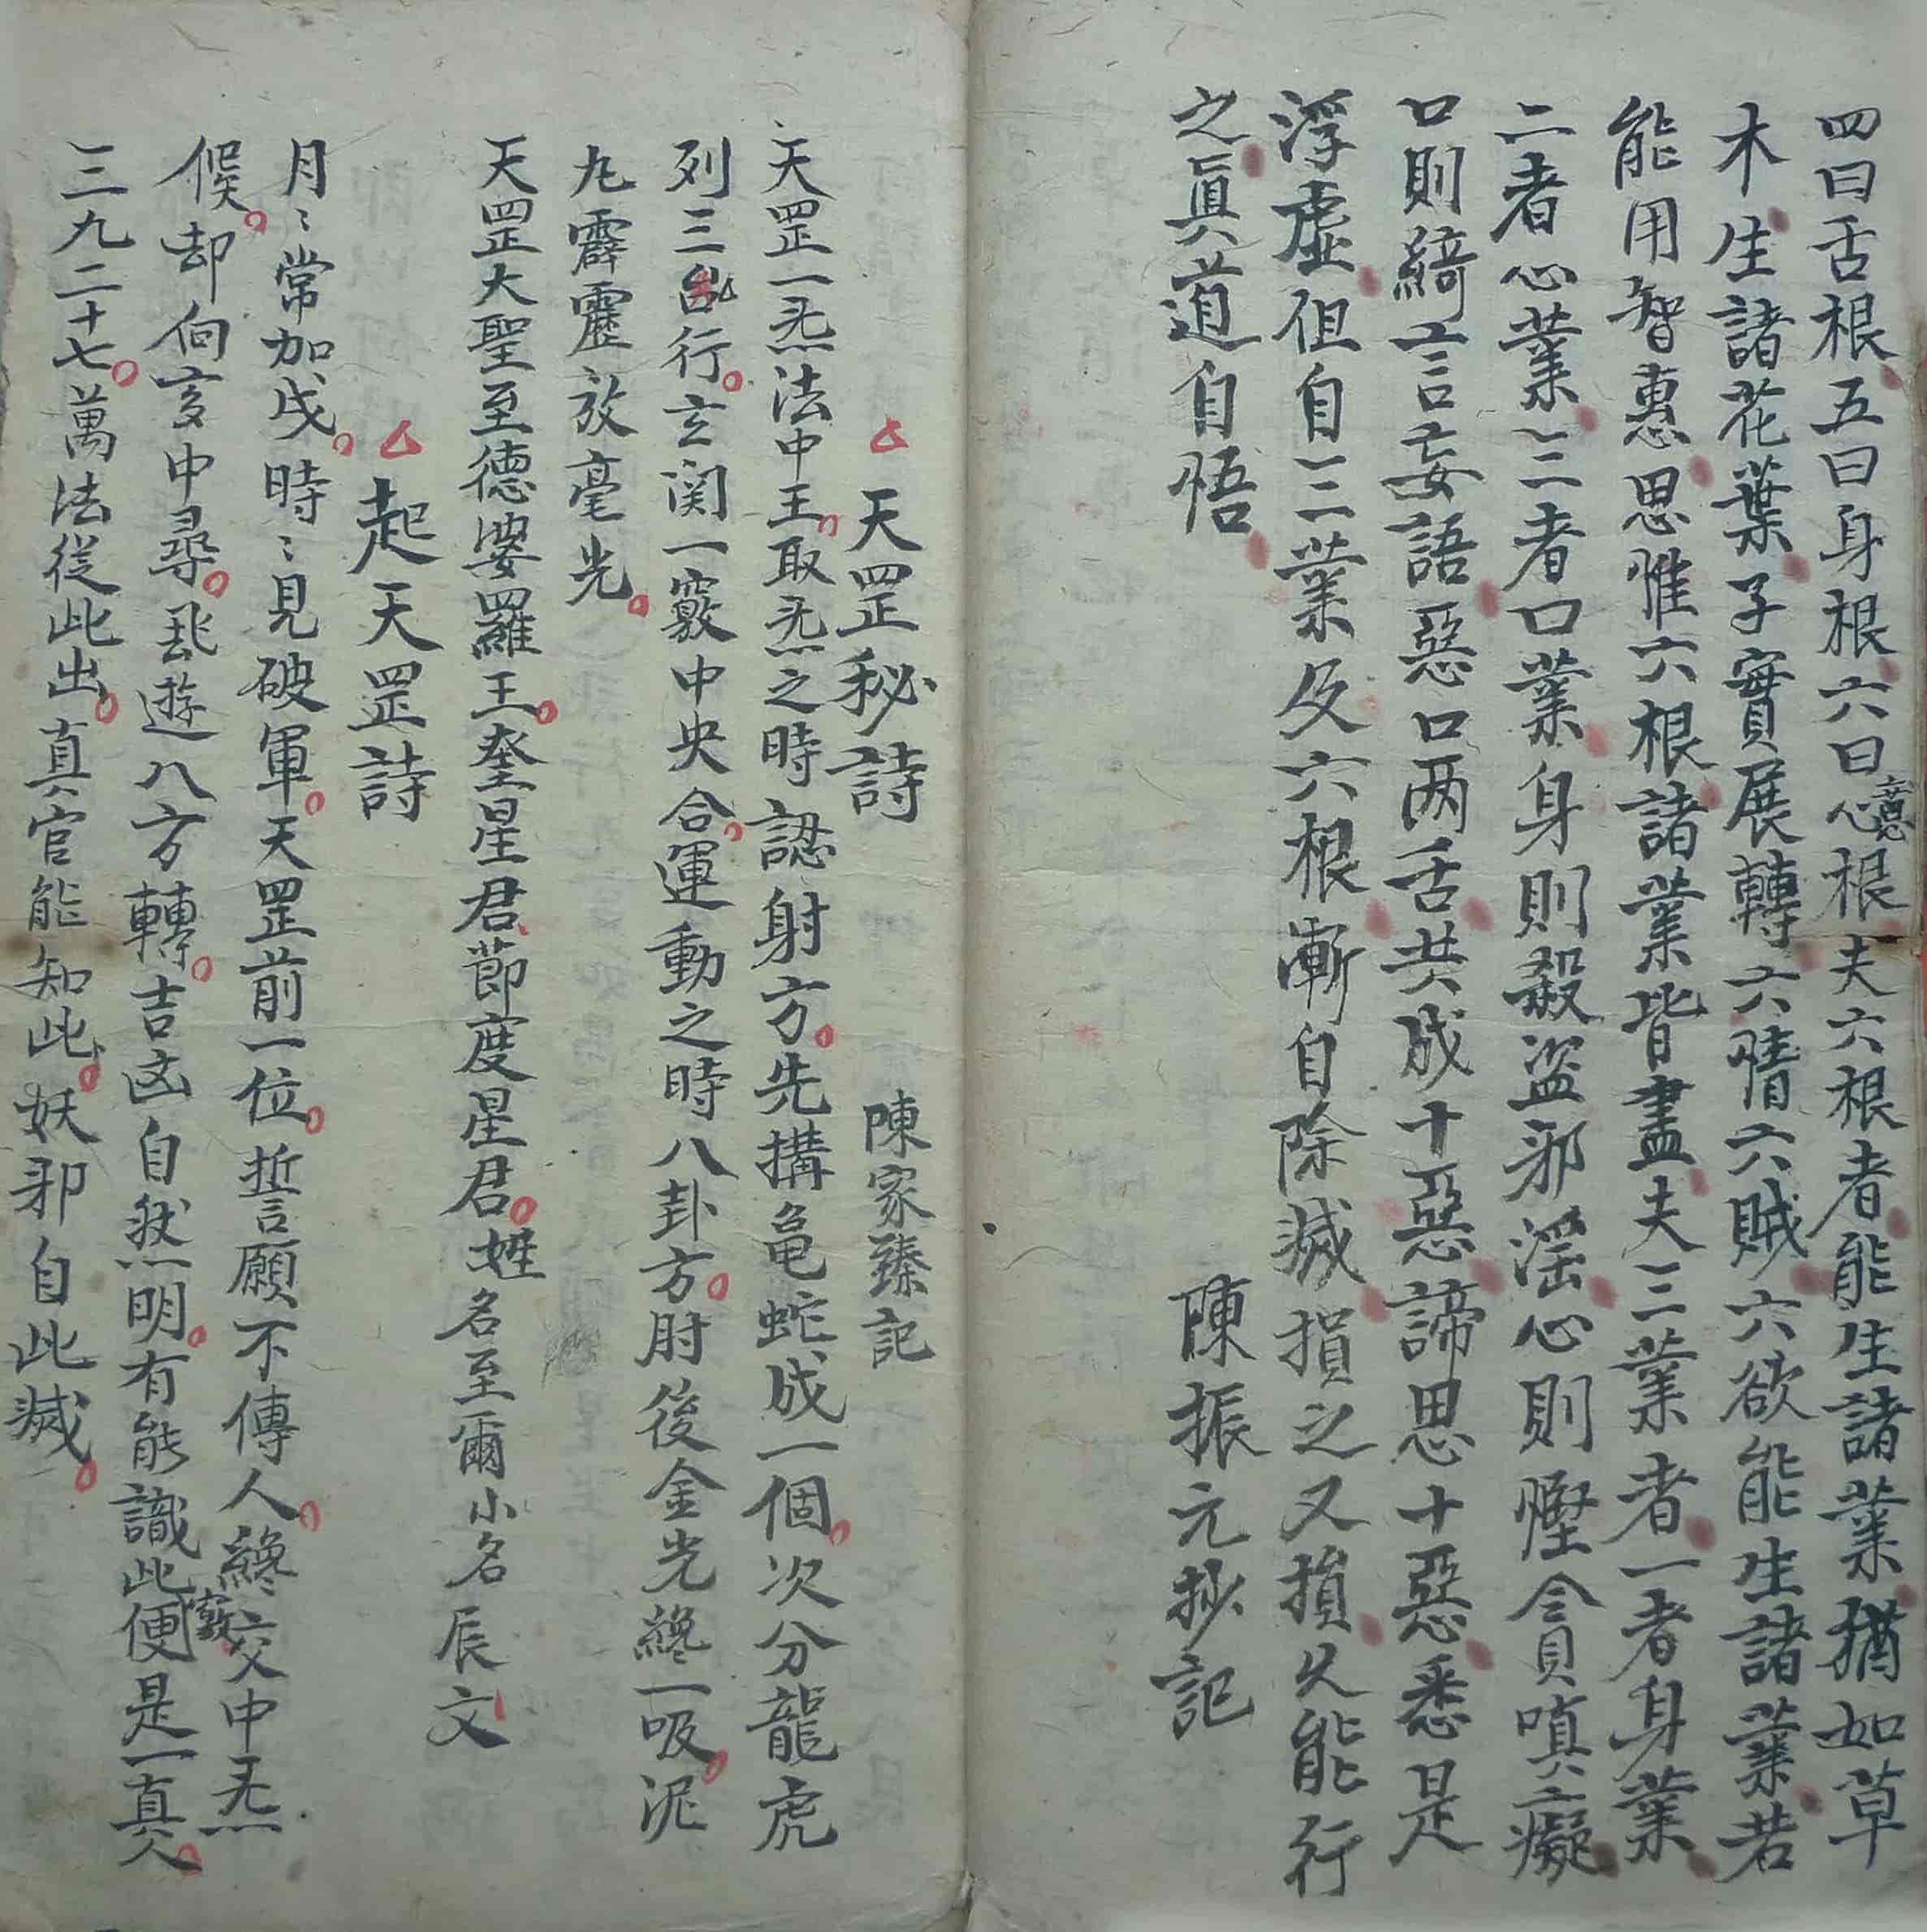 四曰舌根五曰身根六曰心意根夫六根者能生諸業猶如草
木生諸花葉子實展轉六情六賊六欲能生諸業若
能用智惠思惟六根諸業皆盡夫三業者一者身業
二者心業三者口業身則殺盜邪淫心則慳貪嗔癡
口則綺言妄語惡口两舌共成十惡諦思十惡悉是
浮虛但自三業及六根漸自除滅損之又損久能行
之眞道自悟 陳振元抄記
天罡秘詩 陳家臻記
天罡一炁法中王取炁之時認射方先搆龟蛇成一個次分龍虎
列三台行玄関一竅中央合運動之時八卦方肘後金光纔一吸泥
九霹靂放毫光
天罡大聖至德婆羅王奎星星君節度星君姓名至爾小名辰文
起天罡詩
月〻常加戌時〻見破軍天罡前一位誓願不傳人纔交中炁
候却向亥中尋飛遊八方轉吉凶自然明有能識此竅便是一真人
三九二十七萬法從此出真官能知此妖邪自此滅